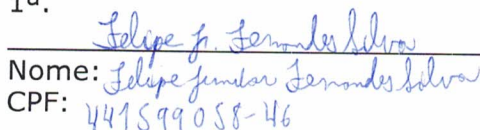 1ª.
Felipe Jr. Fernandes Silva
Nome: Felipe Junior Fernandes Silva
CPF: 441599058-46